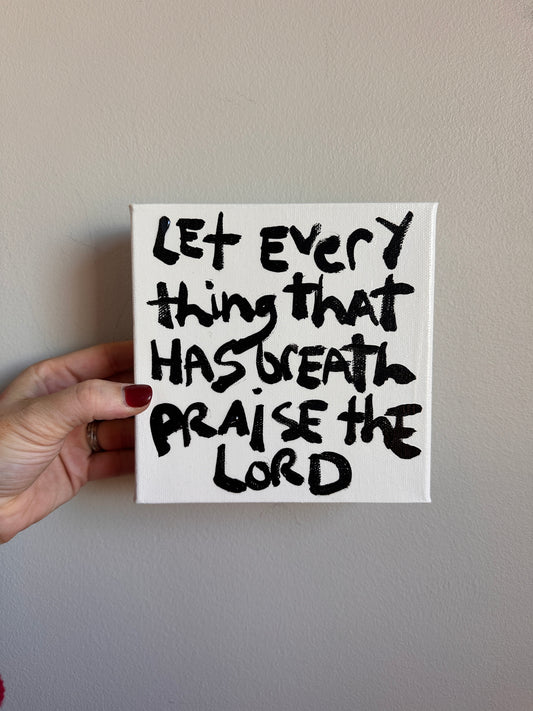 LEt EVErY
thing tHAt
HAS brEATh
PRAiSE thE
LORD